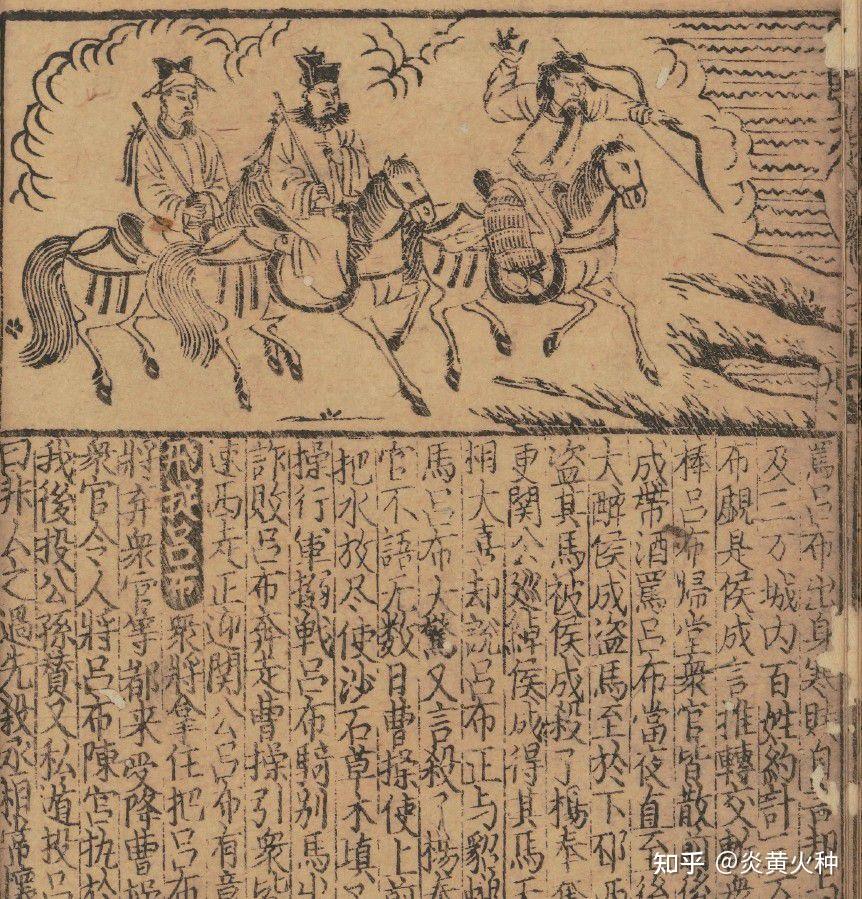 罵呂布出身寒賤自言
及三万城内百姓約計
布覷是侯成言推轉交斬衆
棒呂布帰堂衆官皆散
成帶酒罵呂布當夜
大醉侯成盗馬至於下邳西
盗其馬被侯成殺了楊奉
更関公廵綽侯成得其馬至
相大喜却説呂布正与貂蟬
馬呂布大驚又言殺了楊奉
官不語无数日曹操使上前
把水放尽使沙石草木填又
操行軍搦戰呂布騎別馬出
詐敗呂布奔走曹操引衆皆
連西走正迎関公呂布有意
飛捉呂布 衆將拿住把呂布
將弃衆官等都来受降曹操
衆官令人將呂布陳宮执於
我後投公孫瓚又私道投呂
曰非公之過先殺丞相常懷
知乎 @炎黄火种